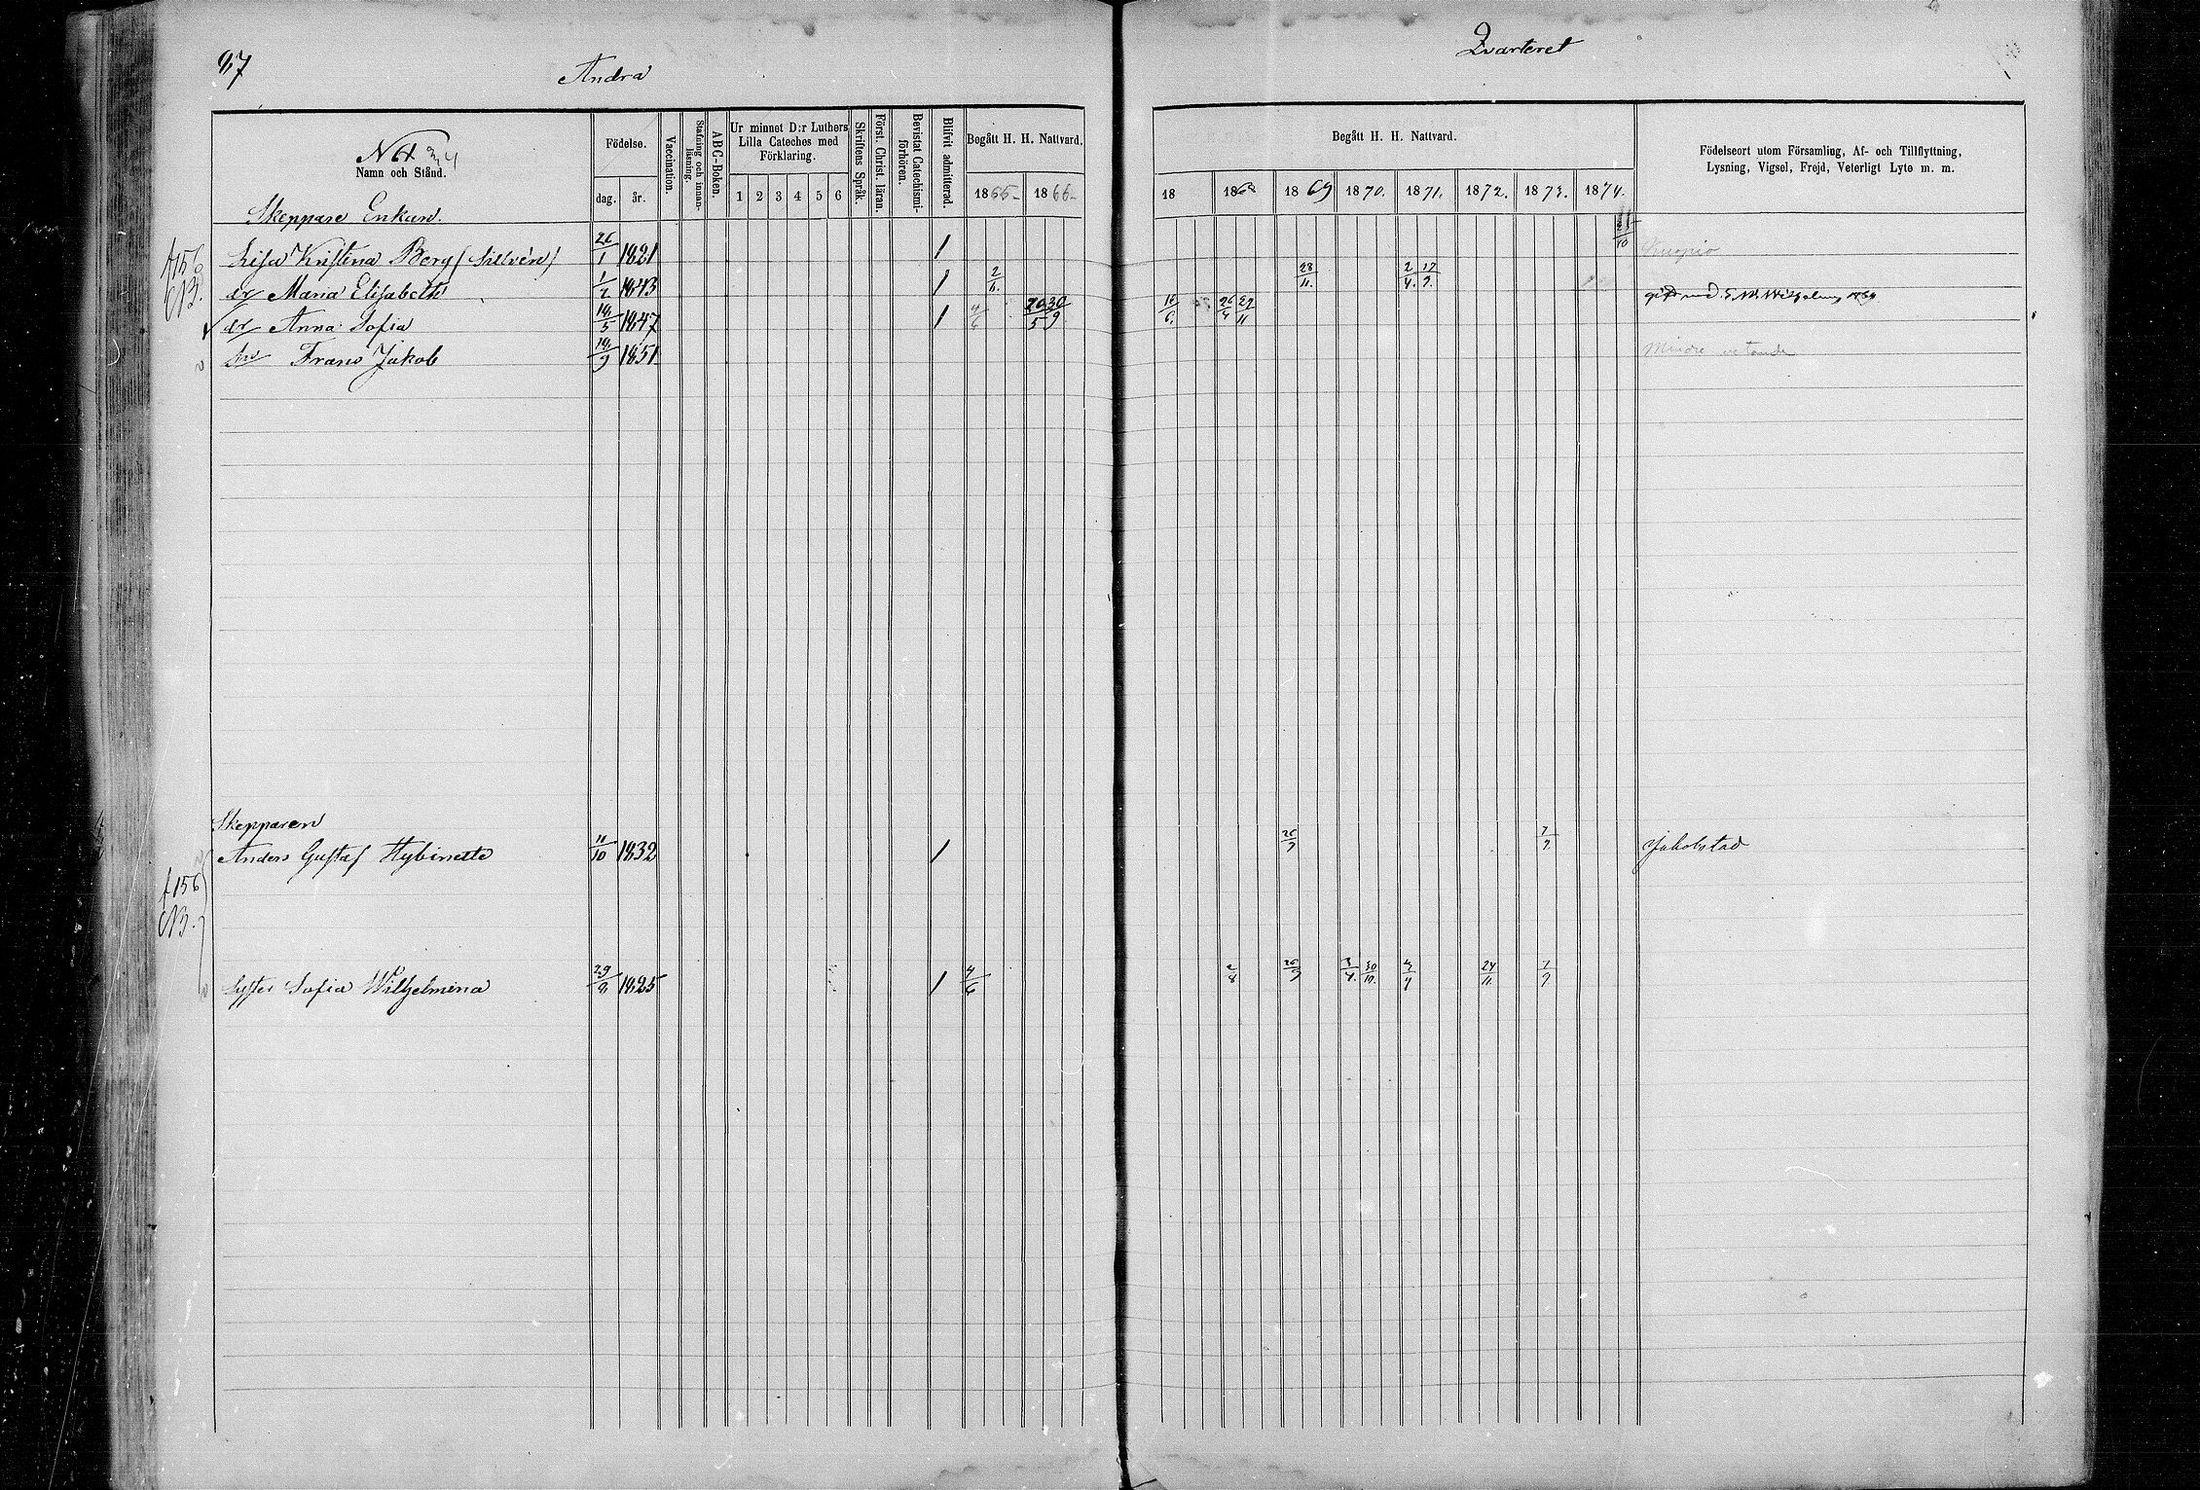 97
Andra
Qvarteret
Namn och Stånd.
Födelse.
dag. år.
Vaccination.
Stafning och innanläsning.
ABC-Boken.
Ur minnet D:r Luthers Lilla Cateches med Förklaring.
1 2 3 4 5 6
Skriftens Språk.
Först. Christ. läran.
Bevistat Catechismiförhören.
Blifvit admitterad.
Begått H. H. Nattvard.
1865 1866
Begått H. H. Nattvard.
18 1868 1869 1870. 1871. 1872. 1873. 1874.
Födelseort utom Församling, Af- och Tillflyttning,
Lysning, Vigsel, Frejd, Veterligt Lyte m. m.
Skeppare Enkan.
Lisa Kristina Berg (Sillvén) 26/1 1821 1 Kuopio
dr Maria Elisabeth 1/2 1843 1 2/6. 28/11. 2/4. 17/9.
dr Anna Sofia 14/5 1847 1 4/6 20/5 30/9 16/6.
Frans Jakob 14/9 1851 Mindre vetande
f 156
NB.
Skepparen
Anders Gustaf Hybinette 11/10 1832 1 26/9 7/9 Jakobstad
f 156
NB.
Syster Sofia Wilhelmina 29/9 1825 1 4/6 2/8 26/9 3/4. 30/10. 3/9 24/11. 7/9